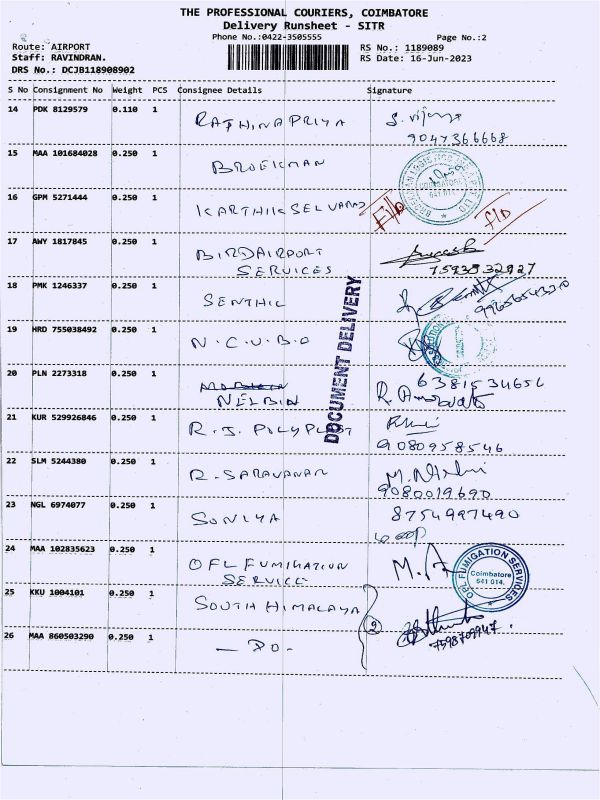 THE PROFESSIONAL COURIERS, COIMBATORE
Delivery Runsheet - SITR
Phone No.:0422-3505555 Page No.:2
Route: AIRPORT RS No.: 1189089
Staff: RAVINDRAN. RS Date: 16-Jun-2023
DRS No.: DCJB118908902
S No Consignment No Weight PCS Consignee Details Signature
14 PDK 8129579 0.110 1 RATHINAPRIYA S. Vijaya
9047366668
15 MAA 101684028 0.250 1 BROEKMAN
16 GPM 5271444 0.250 1 KARTHIKSELVARAJ F/D F/D
17 AWY 1817845 0.250 1 BIRDAIRPORT
SERVICES 7593832927
18 PMK 1246337 0.250 1 SENTHIL
19 HRD 755038492 0.250 1 N.C.U.B.O
DOCUMENT DELIVERY
20 PLN 2273318 0.250 1 6381534656
NELBIN
21 KUR 529926846 0.250 1 R.J. POLYPLAST
9080958546
22 SLM 5244380 0.250 1 R. SARAVANAN
9080019690
23 NGL 6974077 0.250 1 SONIYA 8754997490
24 MAA 102835623 0.250 1 OFL FUMIGATION
SERVICE M. A
OFL FUMIGATION SERVICES
Coimbatore
641 014.
25 KKU 1004101 0.250 1 SOUTH HIMALAYA
2
26 MAA 860503290 0.250 1 — DO - 7598709947.